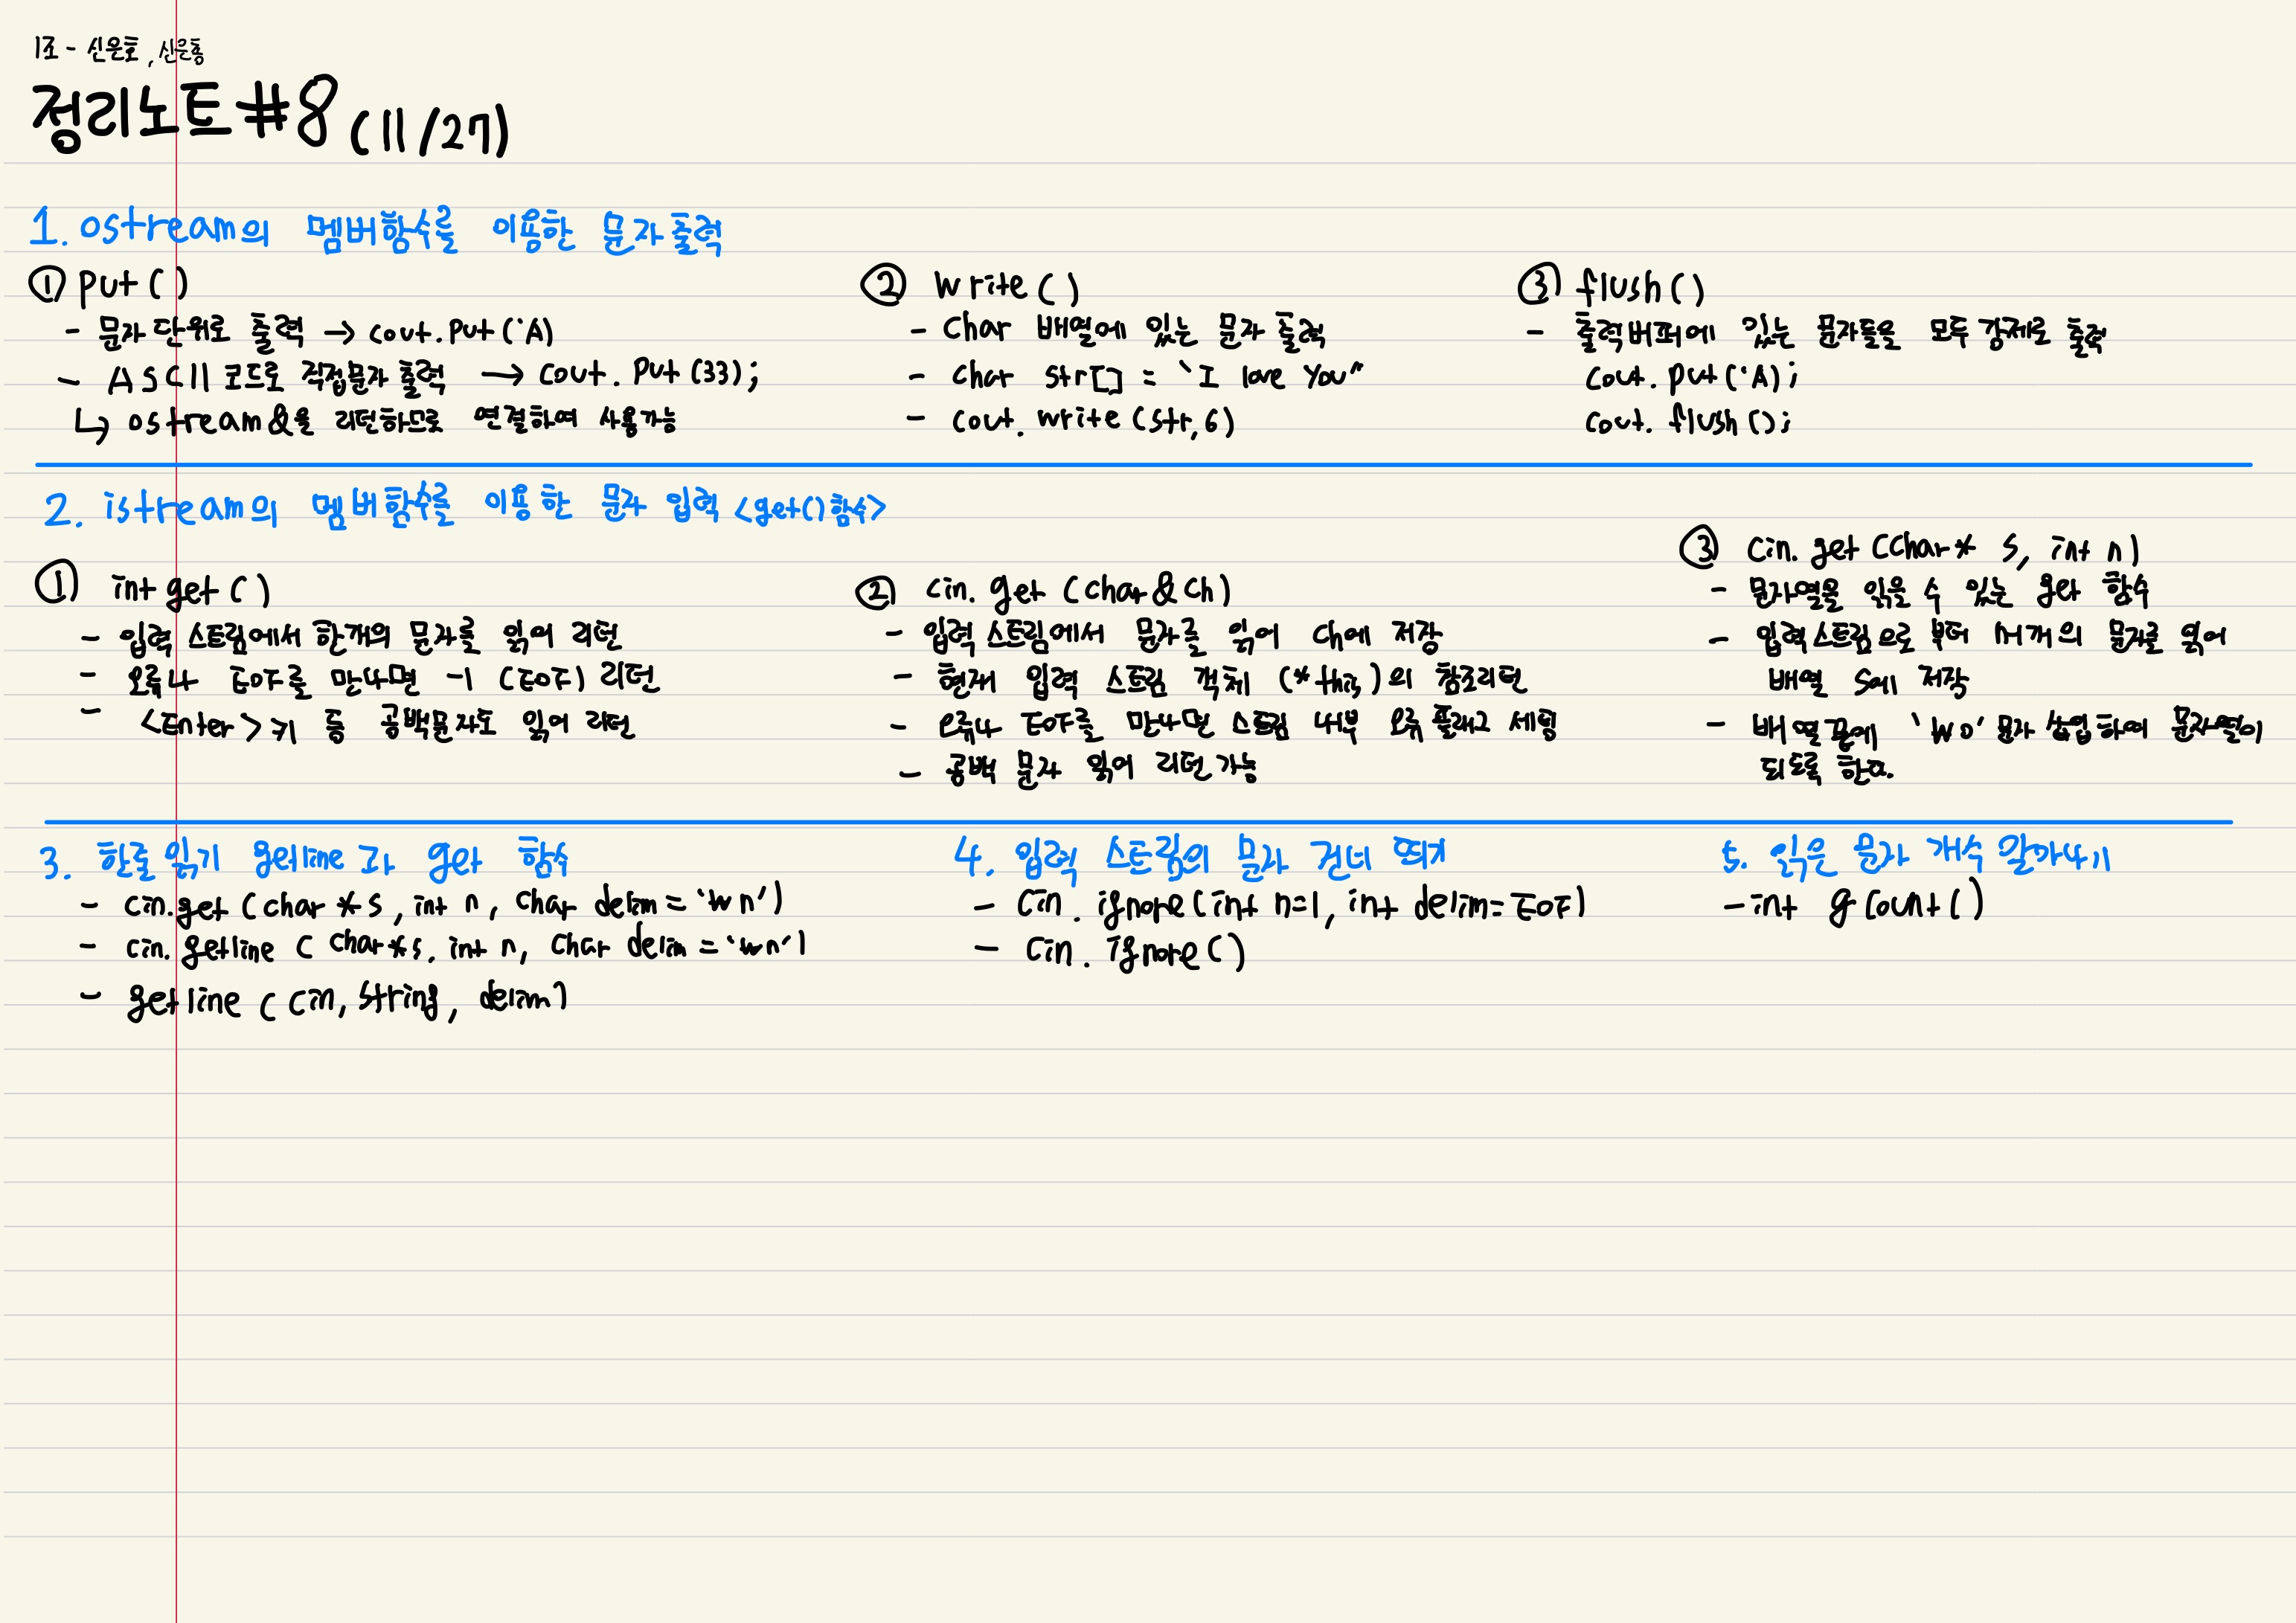 1조 - 신은호, 신은총
정리노트 #8 (11/27)
1. ostream의 멤버함수를 이용한 문자출력
① put()
- 문자 단위로 출력 → cout.put('A)
- ASCII 코드로 직접문자 출력 → cout.put(33);
↳ ostream&을 리턴하므로 연결하여 사용가능
② write()
- char 배열에 있는 문자 출력
- char str[] = "I love you"
- cout.write(str,6)
③ flush()
- 출력버퍼에 있는 문자들을 모두 강제로 출력
cout.put('A);
cout.flush();
2. istream의 멤버함수를 이용한 문자 입력 <get()함수>
① int get()
- 입력 스트림에서 한개의 문자를 읽어 리턴
- 오류나 EOF를 만나면 -1 (EOF) 리턴
- <Enter>키 등 공백문자도 읽어 리턴
② cin.get (char&ch)
- 입력 스트림에서 문자를 읽어 ch에 저장
- 현재 입력 스트림 객체 (*this)의 참조리턴
- 오류나 EOF를 만나면 스트림 내부 오류 플래그 세팅
- 공백 문자 읽어 리턴 가능
③ cin.get (char* s, int n)
- 문자열을 읽을 수 있는 get 함수
- 입력스트림으로 부터 n-1개의 문자를 읽어
배열 s에 저장
- 배열 끝에 '\0' 문자 삽입하여 문자열이
되도록 한다.
3. 한줄 읽기 getline 과 get 함수
- cin.get (char *s, int n, char delim = '\n')
- cin.getline (char*s, int n, char delim = '\n')
- getline (cin, string, delim)
4. 입력 스트림의 문자 건너 띄기
- cin.ignore(int n=1, int delim=EOF)
- cin.ignore()
5. 읽은 문자 개수 알아내기
- int gcount()